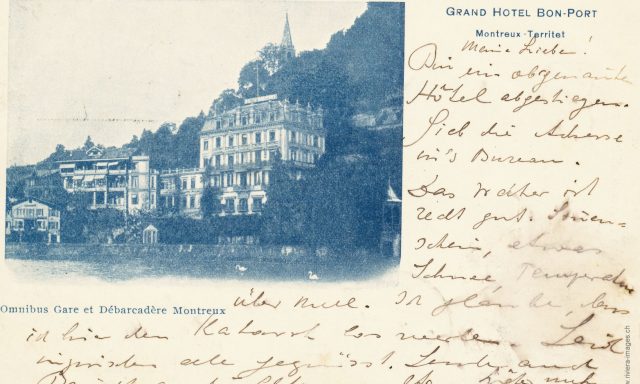 GRAND HOTEL BON-PORT
Montreux-Territet
Meine Lieben!
Bin im obgenannten
Hôtel abgestiegen.
Gieb die Adresse
in's Bureau.
Das Wetter ist
recht gut. Sonnen-
schein, etwas
Schnee Temperatur
Omnibus Gare et Débarcadère Montreux
über null. Ich glaube, dass
ich hier den Katarrh los werden. Seid
inzwischen alle gegrüsst. Sende auch
riviera-images.ch